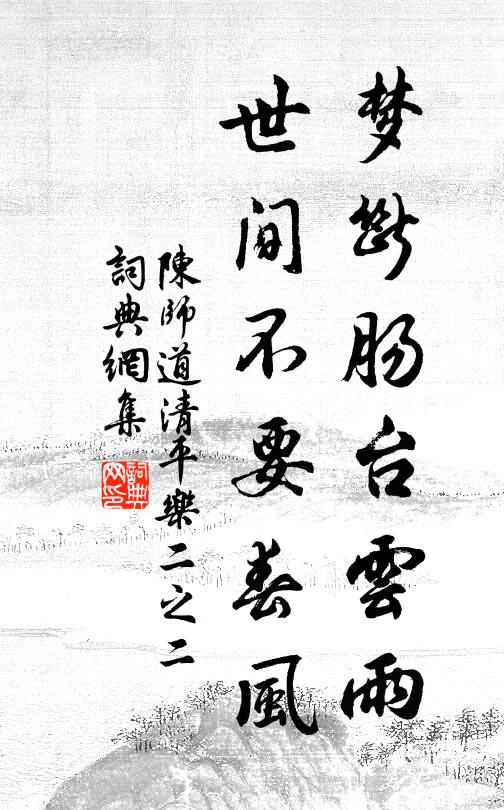 梦斷肠台雲雨
世间不要春風
陳師道清平樂二之二
詞典網集
詞典网印